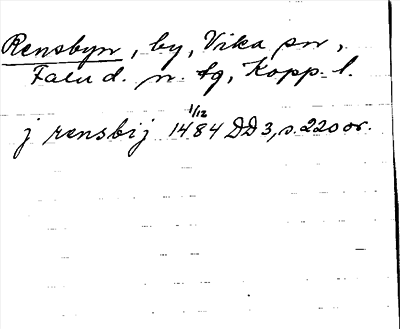 Rensbyn, by, Vika sn,
Falu d. n. tg, Kopp. l.
j rensbij 1/12 1484 DD 3, s. 220 or.